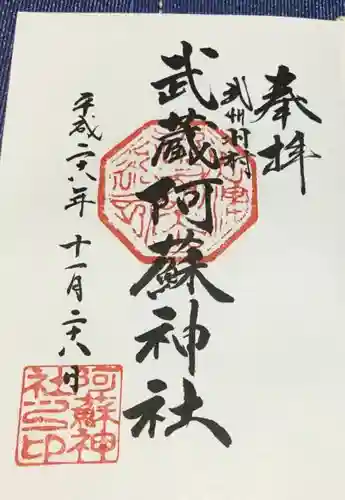 奉拝
武州羽村
武蔵阿蘇神社
平成二十八年十一月二十八日
阿蘇神
社之印